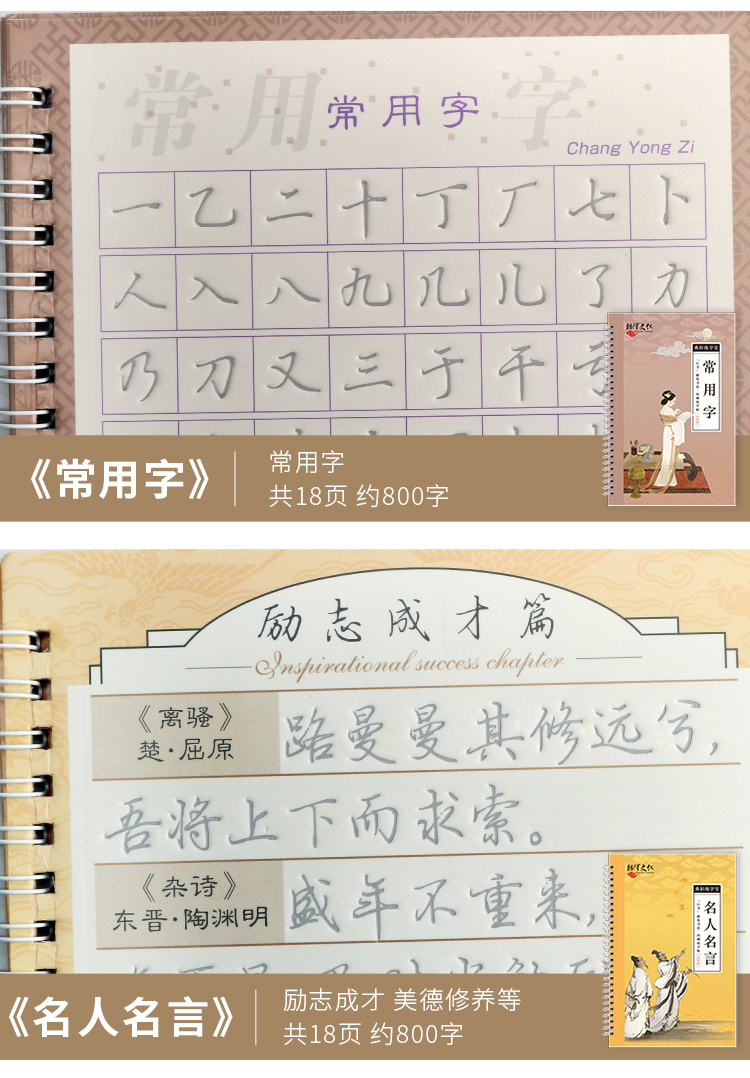 常用字
常用字
Chang Yong Zi
一乙二十丁厂七卜
人入八九几儿了力
乃刀又三于干亏
《常用字》
常用字
共18页 约800字
常用字
励志成才篇
Inspirational success chapter
《离骚》
楚·屈原
路曼曼其修远兮，
吾将上下而求索。
《杂诗》
东晋·陶渊明
盛年不重来，
《名人名言》
励志成才 美德修养等
共18页 约800字
名人名言